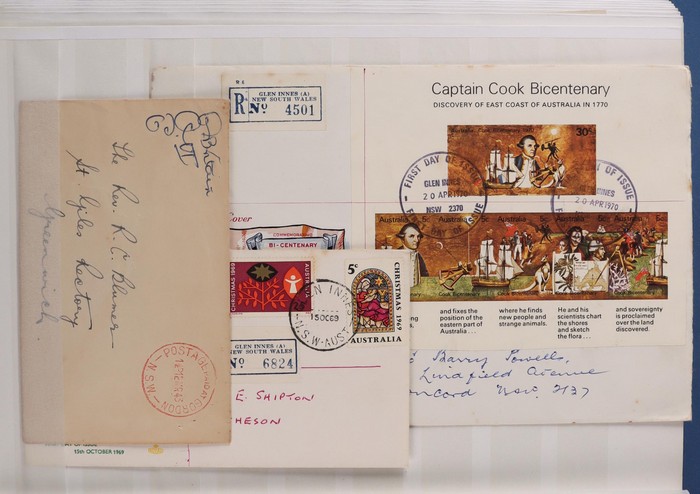 R 6
GLEN INNES (A)
NEW SOUTH WALES
R No 4501
Captain Cook Bicentenary
DISCOVERY OF EAST COAST OF AUSTRALIA IN 1770
Australia Cook Bicentenary 1970
30c
FIRST DAY OF ISSUE
GLEN INNES
20 APR 1970
NSW 2370
FIRST DAY OF ISSUE
20 APR 1970
Australia
5c
Cook Bicentenary
and fixes the
position of the
eastern part of
Australia . . .
where he finds
new people and
strange animals.
He and his
scientists chart
the shores
and sketch
the flora . . .
and sovereignty
is proclaimed
over the land
discovered.
Barry Powells,
Lindfield Avenue
Concord NSW 2137
Cover
BI-CENTENARY
CHRISTMAS 1969
AUSTRALIA
GLEN INNES
15 OC 69
N.S.W-AUST
5c
CHRISTMAS 1969
AUSTRALIA
GLEN INNES (A)
NEW SOUTH WALES
No 6824
E. SHIPTON
HESON
DAY OF ISSUE
15th OCTOBER 1969
The Rev. R. C. Blumer
St. Giles Rectory
Greenwich
POSTAGE PAID AT GORDON
N.S.W.